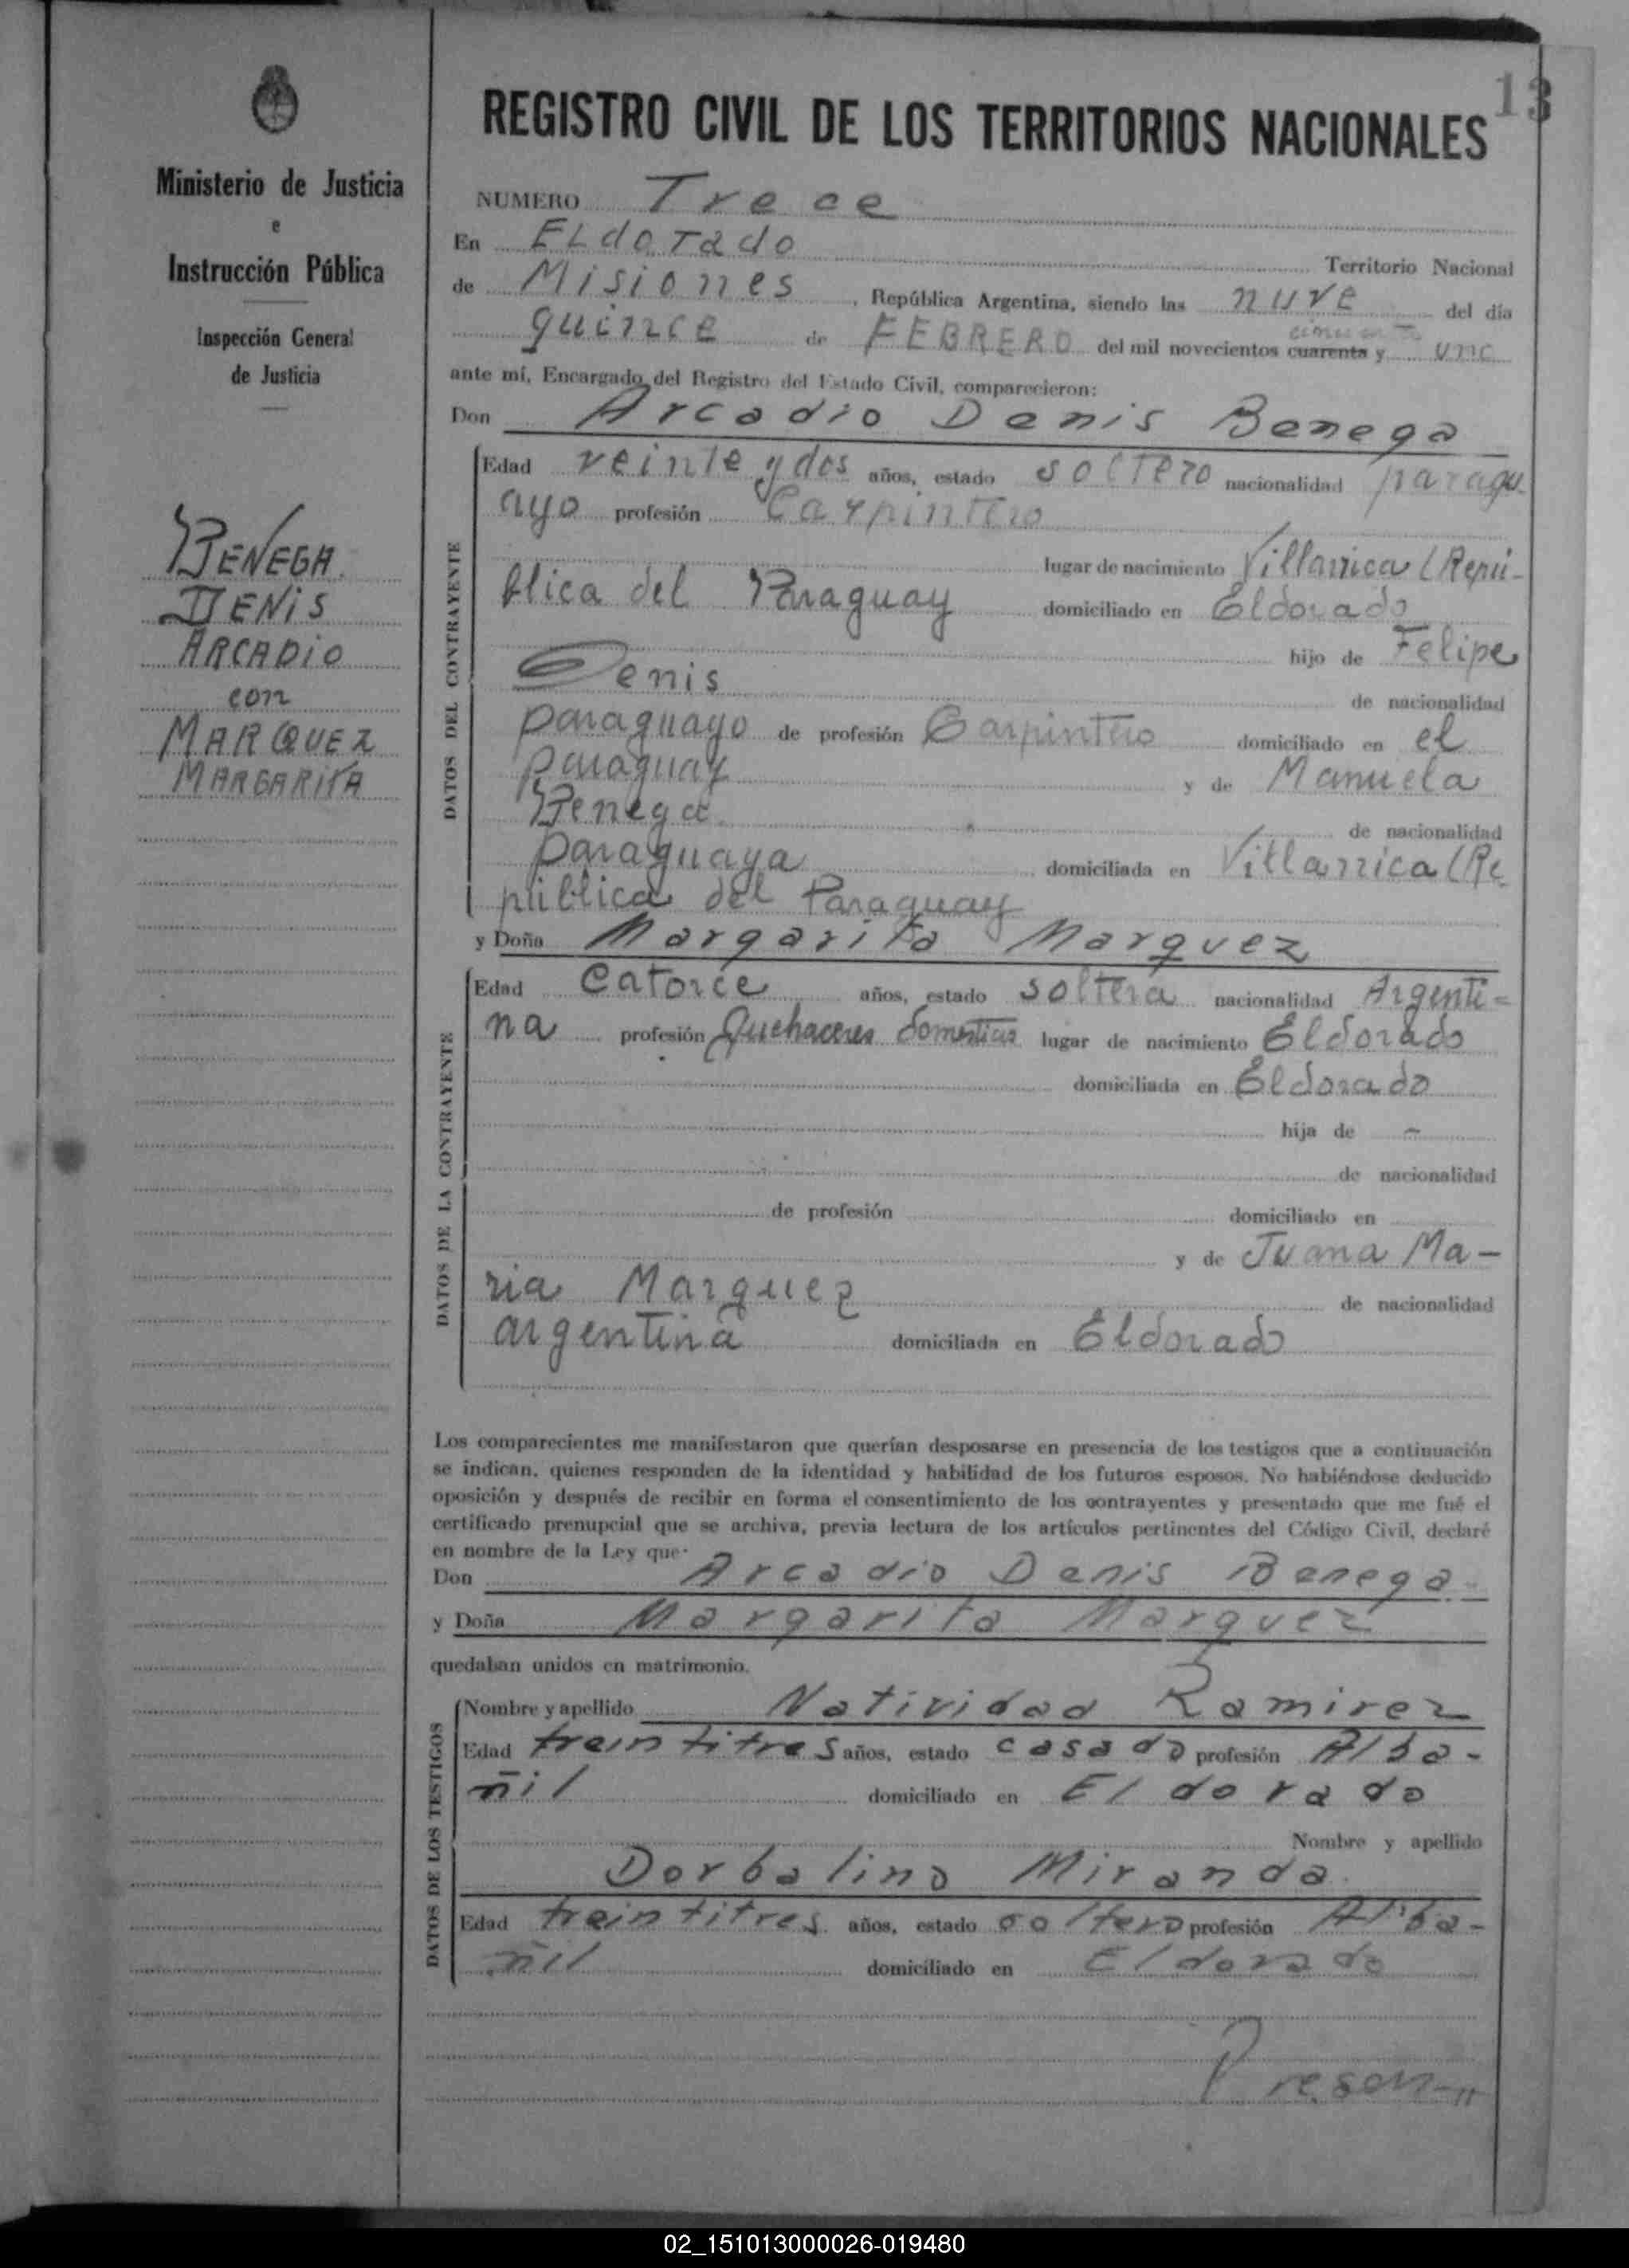 13
Ministerio de Justicia
e
Instrucción Pública
Inspección General
de Justicia
BENEGA
DENIS
ARCADIO
con
MARQUEZ
MARGARITA
REGISTRO CIVIL DE LOS TERRITORIOS NACIONALES
NUMERO Trece
En ELdorado Territorio Nacional
de Misiones, República Argentina, siendo las nuve del día
quince de FEBRERO del mil novecientos cuarenta y uno
ante mí, Encargado del Registro del Estado Civil, comparecieron:
Don Arcadio Denis Benega
DATOS DEL CONTRAYENTE
Edad veinte y dos años, estado soltero nacionalidad paragu-
ayo profesión Carpintero
lugar de nacimiento Villarrica (Repú-
blica del Paraguay domiciliado en Eldorado
hijo de Felipe
Denis de nacionalidad
paraguayo de profesión Carpintero domiciliado en el
paraguay y de Manuela
Benega de nacionalidad
paraguaya domiciliada en Villarrica (Re
pública del Paraguay
y Doña Margarita Marquez
DATOS DE LA CONTRAYENTE
Edad Catorce años, estado soltera nacionalidad Argenti=
na profesión Quehaceres domesticos lugar de nacimiento Eldorado
domiciliada en Eldorado
hija de ~
de nacionalidad
de profesión domiciliado en
y de Juana Ma-
ria Marquez de nacionalidad
argentina domiciliada en Eldorado
Los comparecientes me manifestaron que querían desposarse en presencia de los testigos que a continuación
se indican, quienes responden de la identidad y habilidad de los futuros esposos. No habiéndose deducido
oposición y después de recibir en forma el consentimiento de los contrayentes y presentado que me fué el
certificado prenupcial que se archiva, previa lectura de los artículos pertinentes del Código Civil, declaré
en nombre de la Ley que·
Don Arcadio Denis Benega
y Doña Margarita Marquez
quedaban unidos en matrimonio.
DATOS DE LOS TESTIGOS
Nombre y apellido Natividad Ramirez
Edad treintitres años, estado casado profesión Alba-
ñil domiciliado en Eldorado
Nombre y apellido
Dorbalino Miranda
Edad treintitres años, estado soltero profesión Alba-
ñil domiciliado en Eldorado
Presen-"
02_151013000026-019480